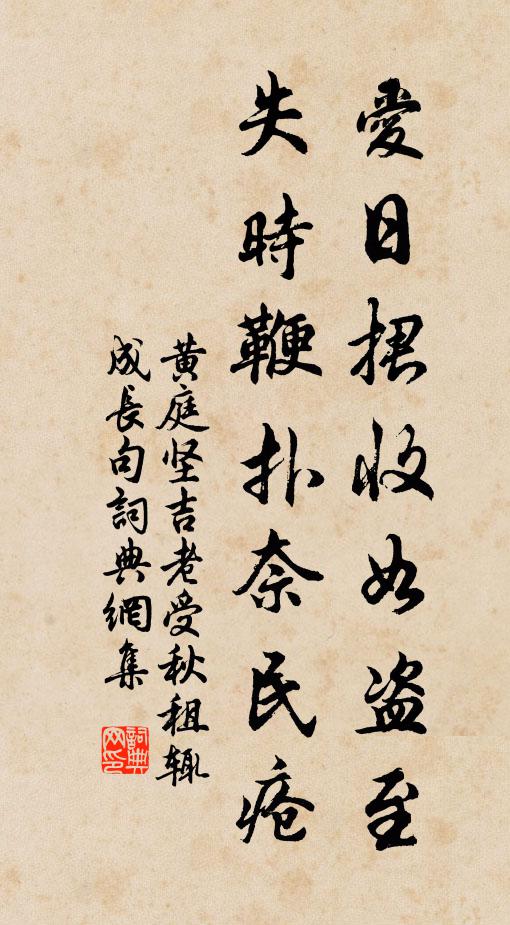 愛日捃收如盗至
失時鞭扑奈民瘡
黄庭坚吉老受秋租辄
成長句詞典網集
詞典
网印